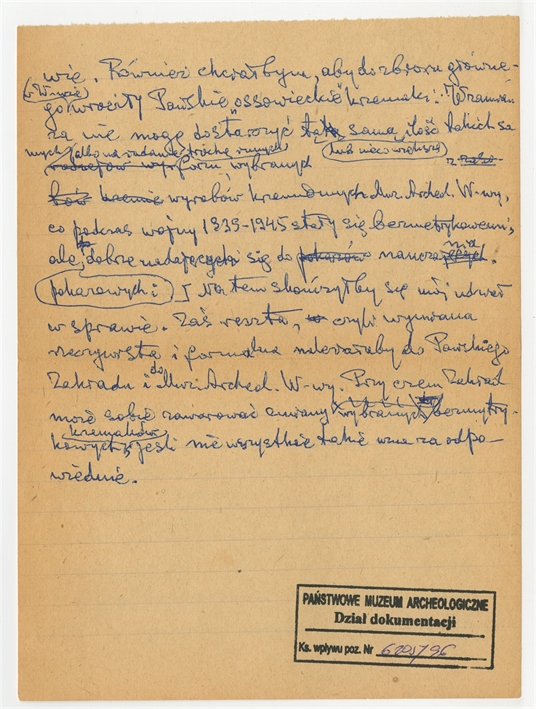 wię. Również chciałbym, aby do zbioru główne-
(w W-wie)
go wróciły Pańskie "ossowieckie" krzemaki. W zamian
za nie mogę dostarczyć taką samą ilość takich sa
mych albo na żądanie trochę innych (lub nieco większą)
wybranych z
wyrobów krzemiennych Muz. Archeol. W-wy,
co podczas wojny 1939-1945 stały się bezmetrykowemi,
ale dobrze nadające się do nauczania.
pokazowych i
Na tem skończyłby się mój udział
w sprawie. Zaś reszta, czyli wymiana
rzeczywista i formalna należałaby do Pańskiego
Zakładu i do Muz. Archeol. W-wy. Przy czem Zakład
może sobie zawarować zmiany wybranych bezmetry-
krzemaków
kowych jeśli nie wszystkie takie uzna za odpo-
wiednie.
PAŃSTWOWE MUZEUM ARCHEOLOGICZNE
Dział dokumentacji
Ks. wpływu poz. Nr